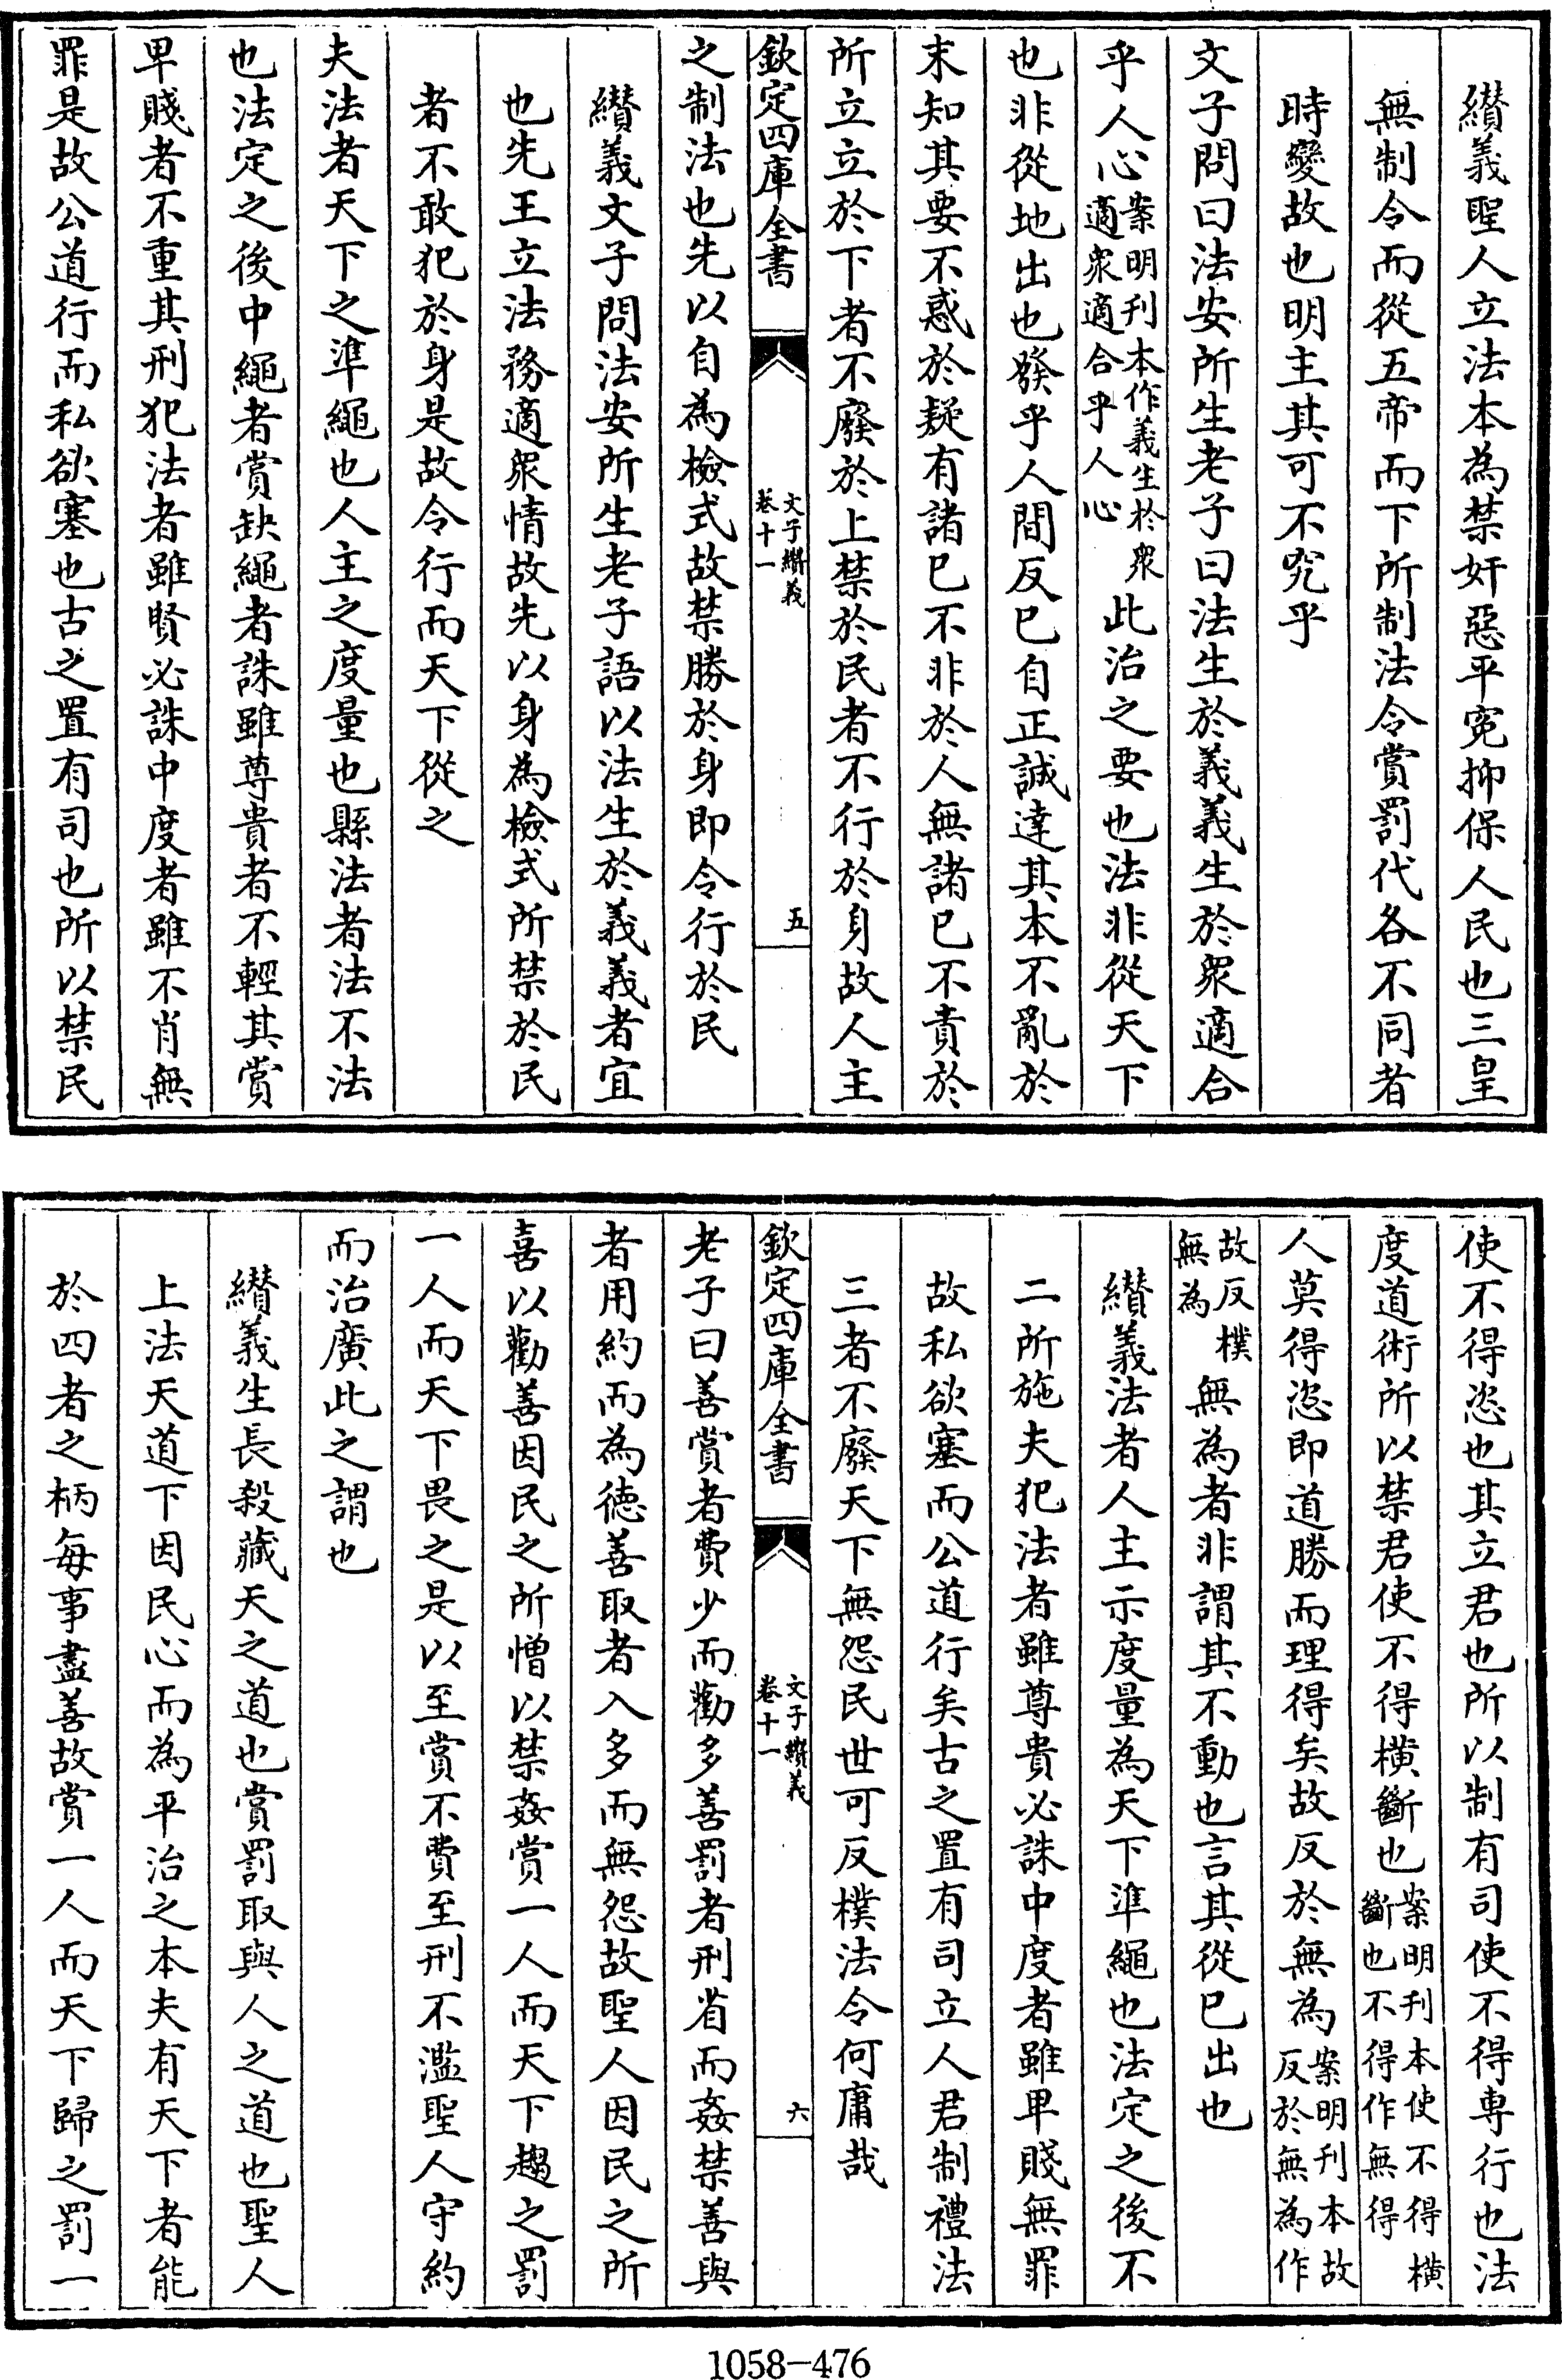 纉義聖人立法本為禁奸惡平寃抑保人民也三皇
無制令而從五帝而下所制法令賞罰代各不同者
時變故也明主其可不究乎
文子問曰法安所生老子曰法生於義義生於衆適合
乎人心案明刊本作義生於衆適衆適合乎人心此治之要也法非從天下
也非從地出也發乎人間反已自正誠達其本不亂於
末知其要不惑於疑有諸已不非於人無諸已不責於
所立立於下者不廢於上禁於民者不行於身故人主
欽定四庫全書
文子纉義
卷十一
五
之制法也先以自為檢式故禁勝於身即令行於民
纉義文子問法安所生老子語以法生於義義者宜
也先王立法務適衆情故先以身為檢式所禁於民
者不敢犯於身是故令行而天下從之
夫法者天下之準繩也人主之度量也縣法者法不法
也法定之後中繩者賞缺繩者誅雖尊貴者不輕其賞
卑賤者不重其刑犯法者雖賢必誅中度者雖不肖無
罪是故公道行而私欲塞也古之置有司也所以禁民
使不得恣也其立君也所以制有司使不得専行也法
度道術所以禁君使不得横斷也案明刊本使不得横斷也不得作無得
人莫得恣即道勝而理得矣故反於無為案明刊本故反於無為作
故反樸無為無為者非謂其不動也言其從已出也
纉義法者人主示度量為天下準繩也法定之後不
二所施夫犯法者雖尊貴必誅中度者雖卑賤無罪
故私欲塞而公道行矣古之置有司立人君制禮法
三者不廢天下無怨民世可反樸法令何庸哉
欽定四庫全書
文子纉義
卷十一
六
老子曰善賞者費少而勸多善罰者刑省而姦禁善與
者用約而為德善取者入多而無怨故聖人因民之所
喜以勸善因民之所憎以禁姦賞一人而天下趨之罰
一人而天下畏之是以至賞不費至刑不濫聖人守約
而治廣此之謂也
纉義生長殺藏天之道也賞罰取與人之道也聖人
上法天道下因民心而為平治之本夫有天下者能
於四者之柄每事盡善故賞一人而天下歸之罰一
1058-476